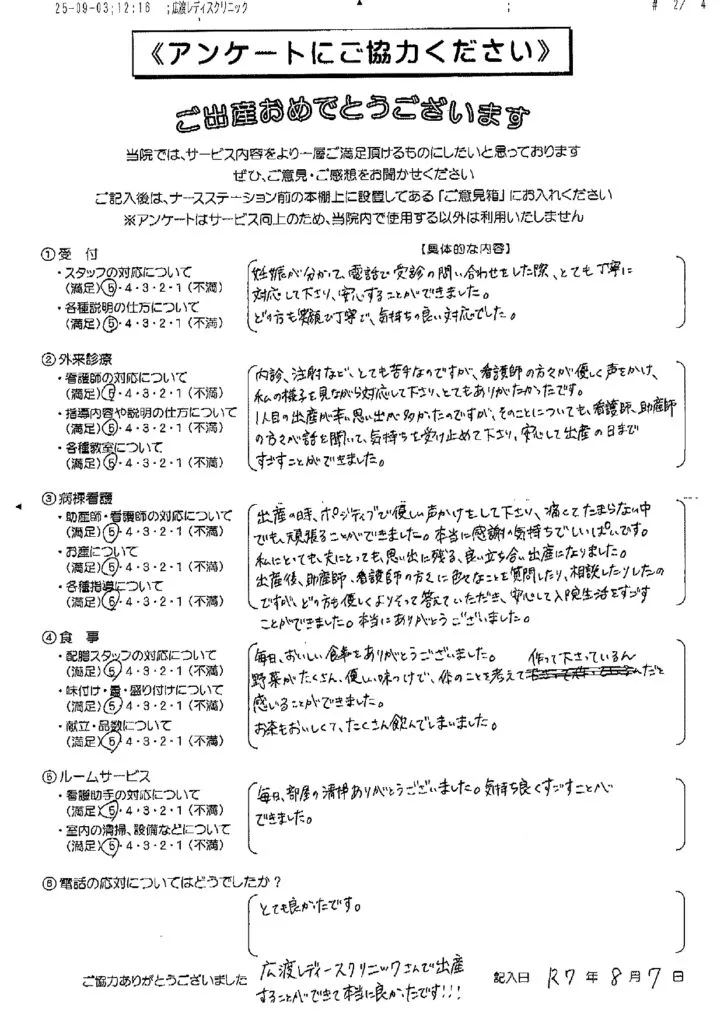 25-09-03;12:16 ;広渡レディスクリニック ; # 2/ 4
《アンケートにご協力ください》
ご出産おめでとうございます
当院では、サービス内容をより一層ご満足頂けるものにしたいと思っております
ぜひ、ご意見・ご感想をお聞かせください
ご記入後は、ナースステーション前の本棚上に設置してある「ご意見箱」にお入れください
※アンケートはサービス向上のため、当院内で使用する以外は利用いたしません
①受 付
【具体的な内容】
・スタッフの対応について
(満足)⑤・4・3・2・1(不満)
・各種説明の仕方について
(満足)⑤・4・3・2・1(不満)
妊娠が分かって、電話で受診の問い合わせをした際、とても丁寧に
対応して下さり、安心することができました。
どの方も笑顔で丁寧で、気持ちの良い対応でした。
②外来診療
・看護師の対応について
(満足)⑤・4・3・2・1(不満)
・指導内容や説明の仕方について
(満足)⑤・4・3・2・1(不満)
・各種教室について
(満足)⑤・4・3・2・1(不満)
内診、注射など、とても苦手なのですが、看護師の方々が優しく声をかけ、
私の様子を見ながら対応して下さり、とてもありがたかったです。
1人目の出産が辛い思い出が多かったのですが、そのことについても、看護師、助産師
の方々が話を聞いて、気持ちを受け止めて下さり、安心して出産の日まで
すごすことができました。
③病棟看護
・助産師・看護師の対応について
(満足)⑤・4・3・2・1(不満)
・お産について
(満足)⑤・4・3・2・1(不満)
・各種指導について
(満足)⑤・4・3・2・1(不満)
出産の時、ポジティブで優しい声かけをして下さり、痛くてたまらない中
でも、頑張ることができました。本当に感謝の気持ちでいっぱいです。
私にとっても、夫にとっても、思い出に残る、良い立ち合い出産になりました。
出産後、助産師、看護師の方々に色々なことを質問したり、相談したりしたの
ですが、どの方も優しくよりそって答えていただき、安心して入院生活をすごす
ことができました。本当にありがとうございました。
④食 事
・配膳スタッフの対応について
(満足)⑤・4・3・2・1(不満)
・味付け・量・盛り付けについて
(満足)⑤・4・3・2・1(不満)
・献立・品数について
(満足)⑤・4・3・2・1(不満)
毎日、おいしい食事をありがとうございました。
野菜がたくさん、優しい味つけで、体のことを考えて作って下さっているんだと
感じることができました。
お茶もおいしくて、たくさん飲んでしまいました。
⑤ルームサービス
・看護助手の対応について
(満足)⑤・4・3・2・1(不満)
・室内の清掃、設備などについて
(満足)⑤・4・3・2・1(不満)
毎日、部屋の清掃ありがとうございました。気持ち良くすごすことが
できました。
⑥電話の応対についてはどうでしたか?
とても良かったです。
ご協力ありがとうございました
広渡レディースクリニックさんで出産
することができて本当に良かったです!!!
記入日 R7年8月7日